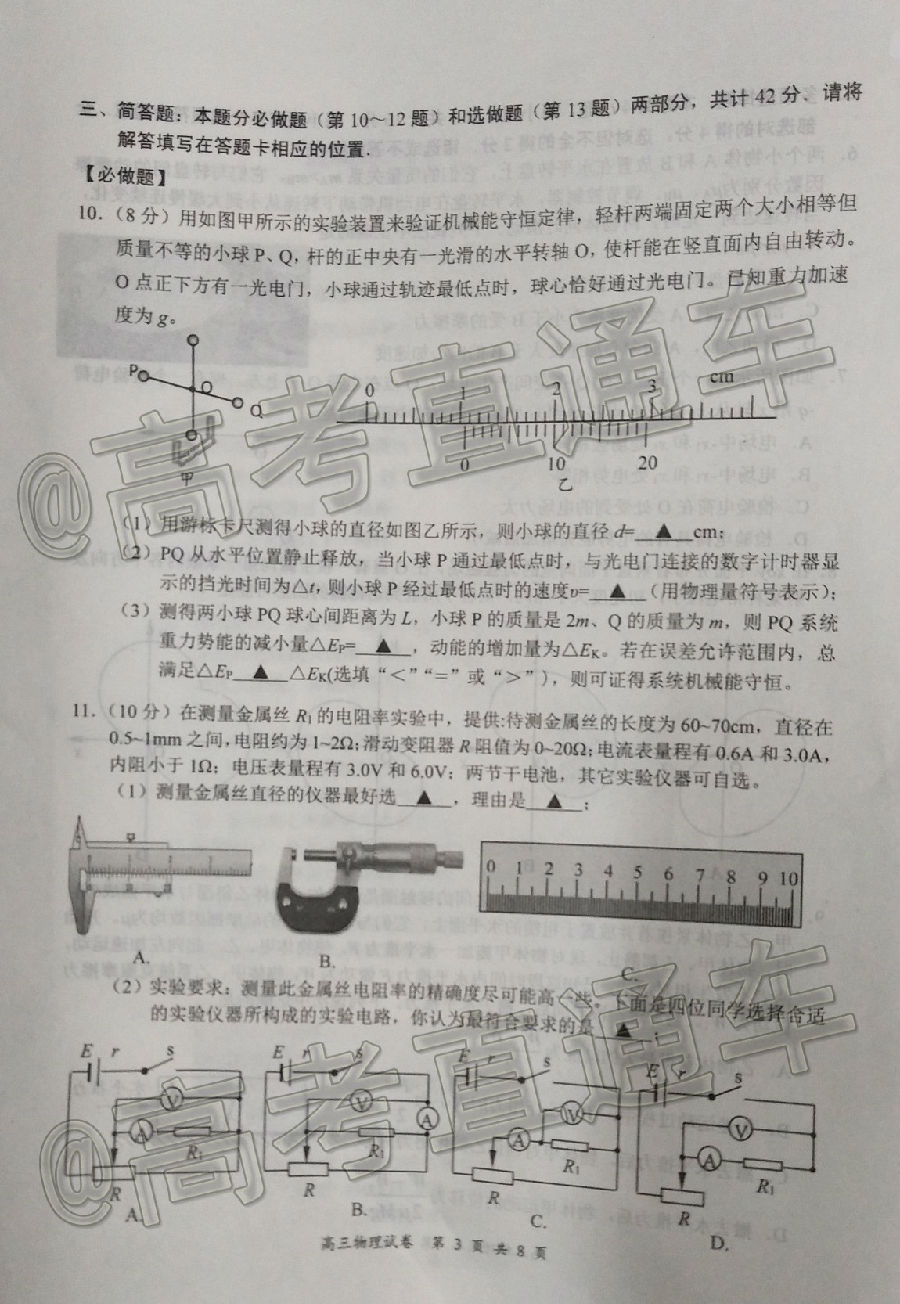 三、简答题：本题分必做题（第 10～12 题）和选做题（第 13 题）两部分，共计 42 分．请将
解答填写在答题卡相应的位置．
【必做题】
10．（8 分）用如图甲所示的实验装置来验证机械能守恒定律，轻杆两端固定两个大小相等但
质量不等的小球 P、Q，杆的正中央有一光滑的水平转轴 O，使杆能在竖直面内自由转动。
O 点正下方有一光电门，小球通过轨迹最低点时，球心恰好通过光电门。已知重力加速
度为 g。
P O Q
甲
0 1 2 3 cm
0 10 20
乙
（1）用游标卡尺测得小球的直径如图乙所示，则小球的直径 d=▲cm；
（2）PQ 从水平位置静止释放，当小球 P 通过最低点时，与光电门连接的数字计时器显
示的挡光时间为△t，则小球 P 经过最低点时的速度υ=▲（用物理量符号表示）；
（3）测得两小球 PQ 球心间距离为 L，小球 P 的质量是 2m、Q 的质量为 m，则 PQ 系统
重力势能的减小量△EP=▲，动能的增加量为△EK。若在误差允许范围内，总
满足△EP▲△EK(选填“＜”“＝”或“＞”），则可证得系统机械能守恒。
11．（10 分）在测量金属丝 R1 的电阻率实验中，提供:待测金属丝的长度为 60~70cm，直径在
0.5~1mm 之间，电阻约为 1~2Ω；滑动变阻器 R 阻值为 0~20Ω；电流表量程有 0.6A 和 3.0A，
内阻小于 1Ω；电压表量程有 3.0V 和 6.0V；两节干电池，其它实验仪器可自选。
（1）测量金属丝直径的仪器最好选▲，理由是▲；
0 1 2 3 4 5 6 7 8 9 10
A. B. C.
（2）实验要求：测量此金属丝电阻率的精确度尽可能高一些。下面是四位同学选择合适
的实验仪器所构成的实验电路，你认为最符合要求的是▲；
E r s V A R1 R
A.
E r s V A R1 R
B.
E r s V A R1 R
C.
E r s V A R1 R
D.
高三物理试卷 第 3 页 共 8 页
@高考直通车
@高考直通车